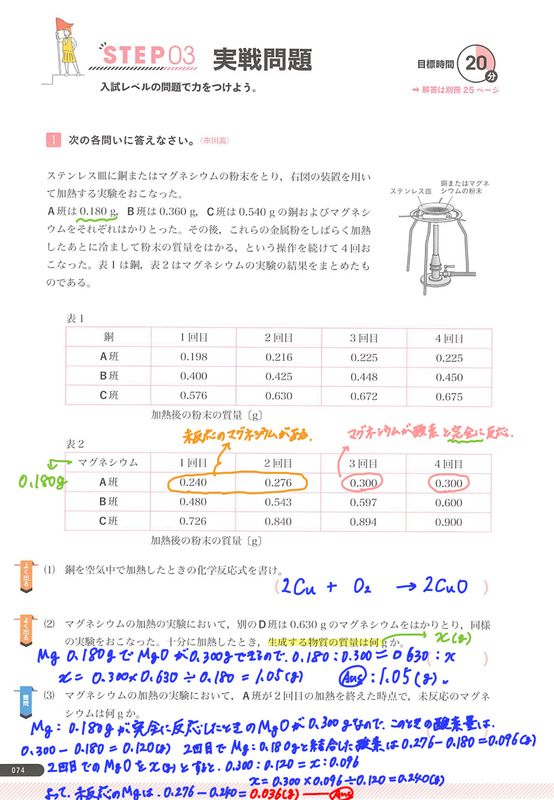 STEP03 実戦問題
目標時間 20分
入試レベルの問題で力をつけよう。
➡ 解答は別冊 25 ページ
1 次の各問いに答えなさい。〈市川高〉
ステンレス皿に銅またはマグネシウムの粉末をとり，右図の装置を用い
て加熱する実験をおこなった。
A班は 0.180 g，B班は 0.360 g，C班は 0.540 g の銅およびマグネシ
ウムをそれぞれはかりとった。その後，これらの金属粉をしばらく加熱
したあとに冷まして粉末の質量をはかる，という操作を続けて 4 回お
こなった。表 1 は銅，表 2 はマグネシウムの実験の結果をまとめたも
のである。
銅またはマグネ
シウムの粉末
ステンレス皿
表 1
銅 1 回目 2 回目 3 回目 4 回目
A班 0.198 0.216 0.225 0.225
B班 0.400 0.425 0.448 0.450
C班 0.576 0.630 0.672 0.675
加熱後の粉末の質量〔g〕
未反応のマグネシウムがある。
マグネシウムが酸素と完全に反応。
表 2
マグネシウム 1 回目 2 回目 3 回目 4 回目
0.180g
A班 0.240 0.276 0.300 0.300
B班 0.480 0.543 0.597 0.600
C班 0.726 0.840 0.894 0.900
加熱後の粉末の質量〔g〕
よく出る
(1) 銅を空気中で加熱したときの化学反応式を書け。
( 2Cu + O₂ → 2CuO )
よく出る
(2) マグネシウムの加熱の実験において，別のD班は 0.630 g のマグネシウムをはかりとり，同様
の実験をおこなった。十分に加熱したとき，生成する物質の質量は何gか。
x(g)
Mg 0.180gでMgOが0.300gできるので. 0.180:0.300=0.630:x
x = 0.300×0.630÷0.180=1.05(g) Ans:1.05(g).
難問
(3) マグネシウムの加熱の実験において，A班が 2 回目の加熱を終えた時点で，未反応のマグネ
シウムは何 g か。
Mg:0.180gが完全に反応したときのMgOが0.300gなので. このときの酸素量は.
0.300-0.180=0.120(g) 2回目でMg:0.180gと結合した酸素は0.276-0.180=0.096(g)
2回目でのMgOをx(g)とすると. 0.300:0.120=x:0.096
x=0.300×0.096÷0.120=0.240(g)
よって、未反応のMgは. 0.276-0.240=0.036(g) Ans
074